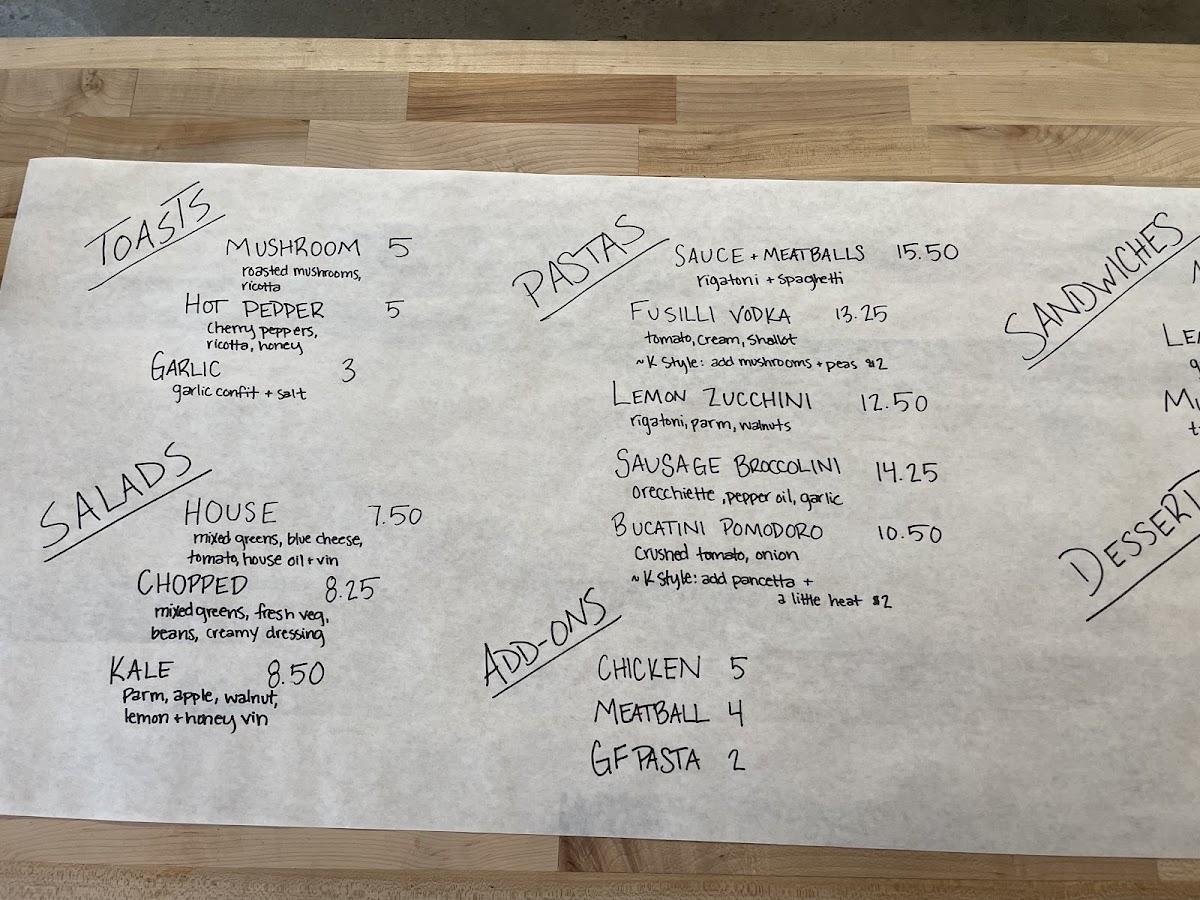 TOASTS
MUSHROOM 5
roasted mushrooms,
ricotta
HOT PEPPER 5
Cherry peppers,
ricotta, honey
GARLIC 3
garlic confit + salt
SALADS
HOUSE 7.50
mixed greens, blue cheese,
tomato, house oil + vin
CHOPPED 8.25
mixed greens, fresh veg,
beans, creamy dressing
KALE 8.50
Parm, apple, walnut,
lemon + honey vin
PASTAS
SAUCE + MEATBALLS 15.50
rigatoni + spaghetti
FUSILLI VODKA 13.25
tomato, cream, shallot
~ K Style: add mushrooms + peas $2
LEMON ZUCCHINI 12.50
rigatoni, parm, walnuts
SAUSAGE BROCCOLINI 14.25
orecchiette, pepper oil, garlic
BUCATINI POMODORO 10.50
Crushed tomato, onion
~ K Style: add pancetta +
a little heat $2
ADD-ONS
CHICKEN 5
MEATBALL 4
GF PASTA 2
SANDWICHES
DESSERT